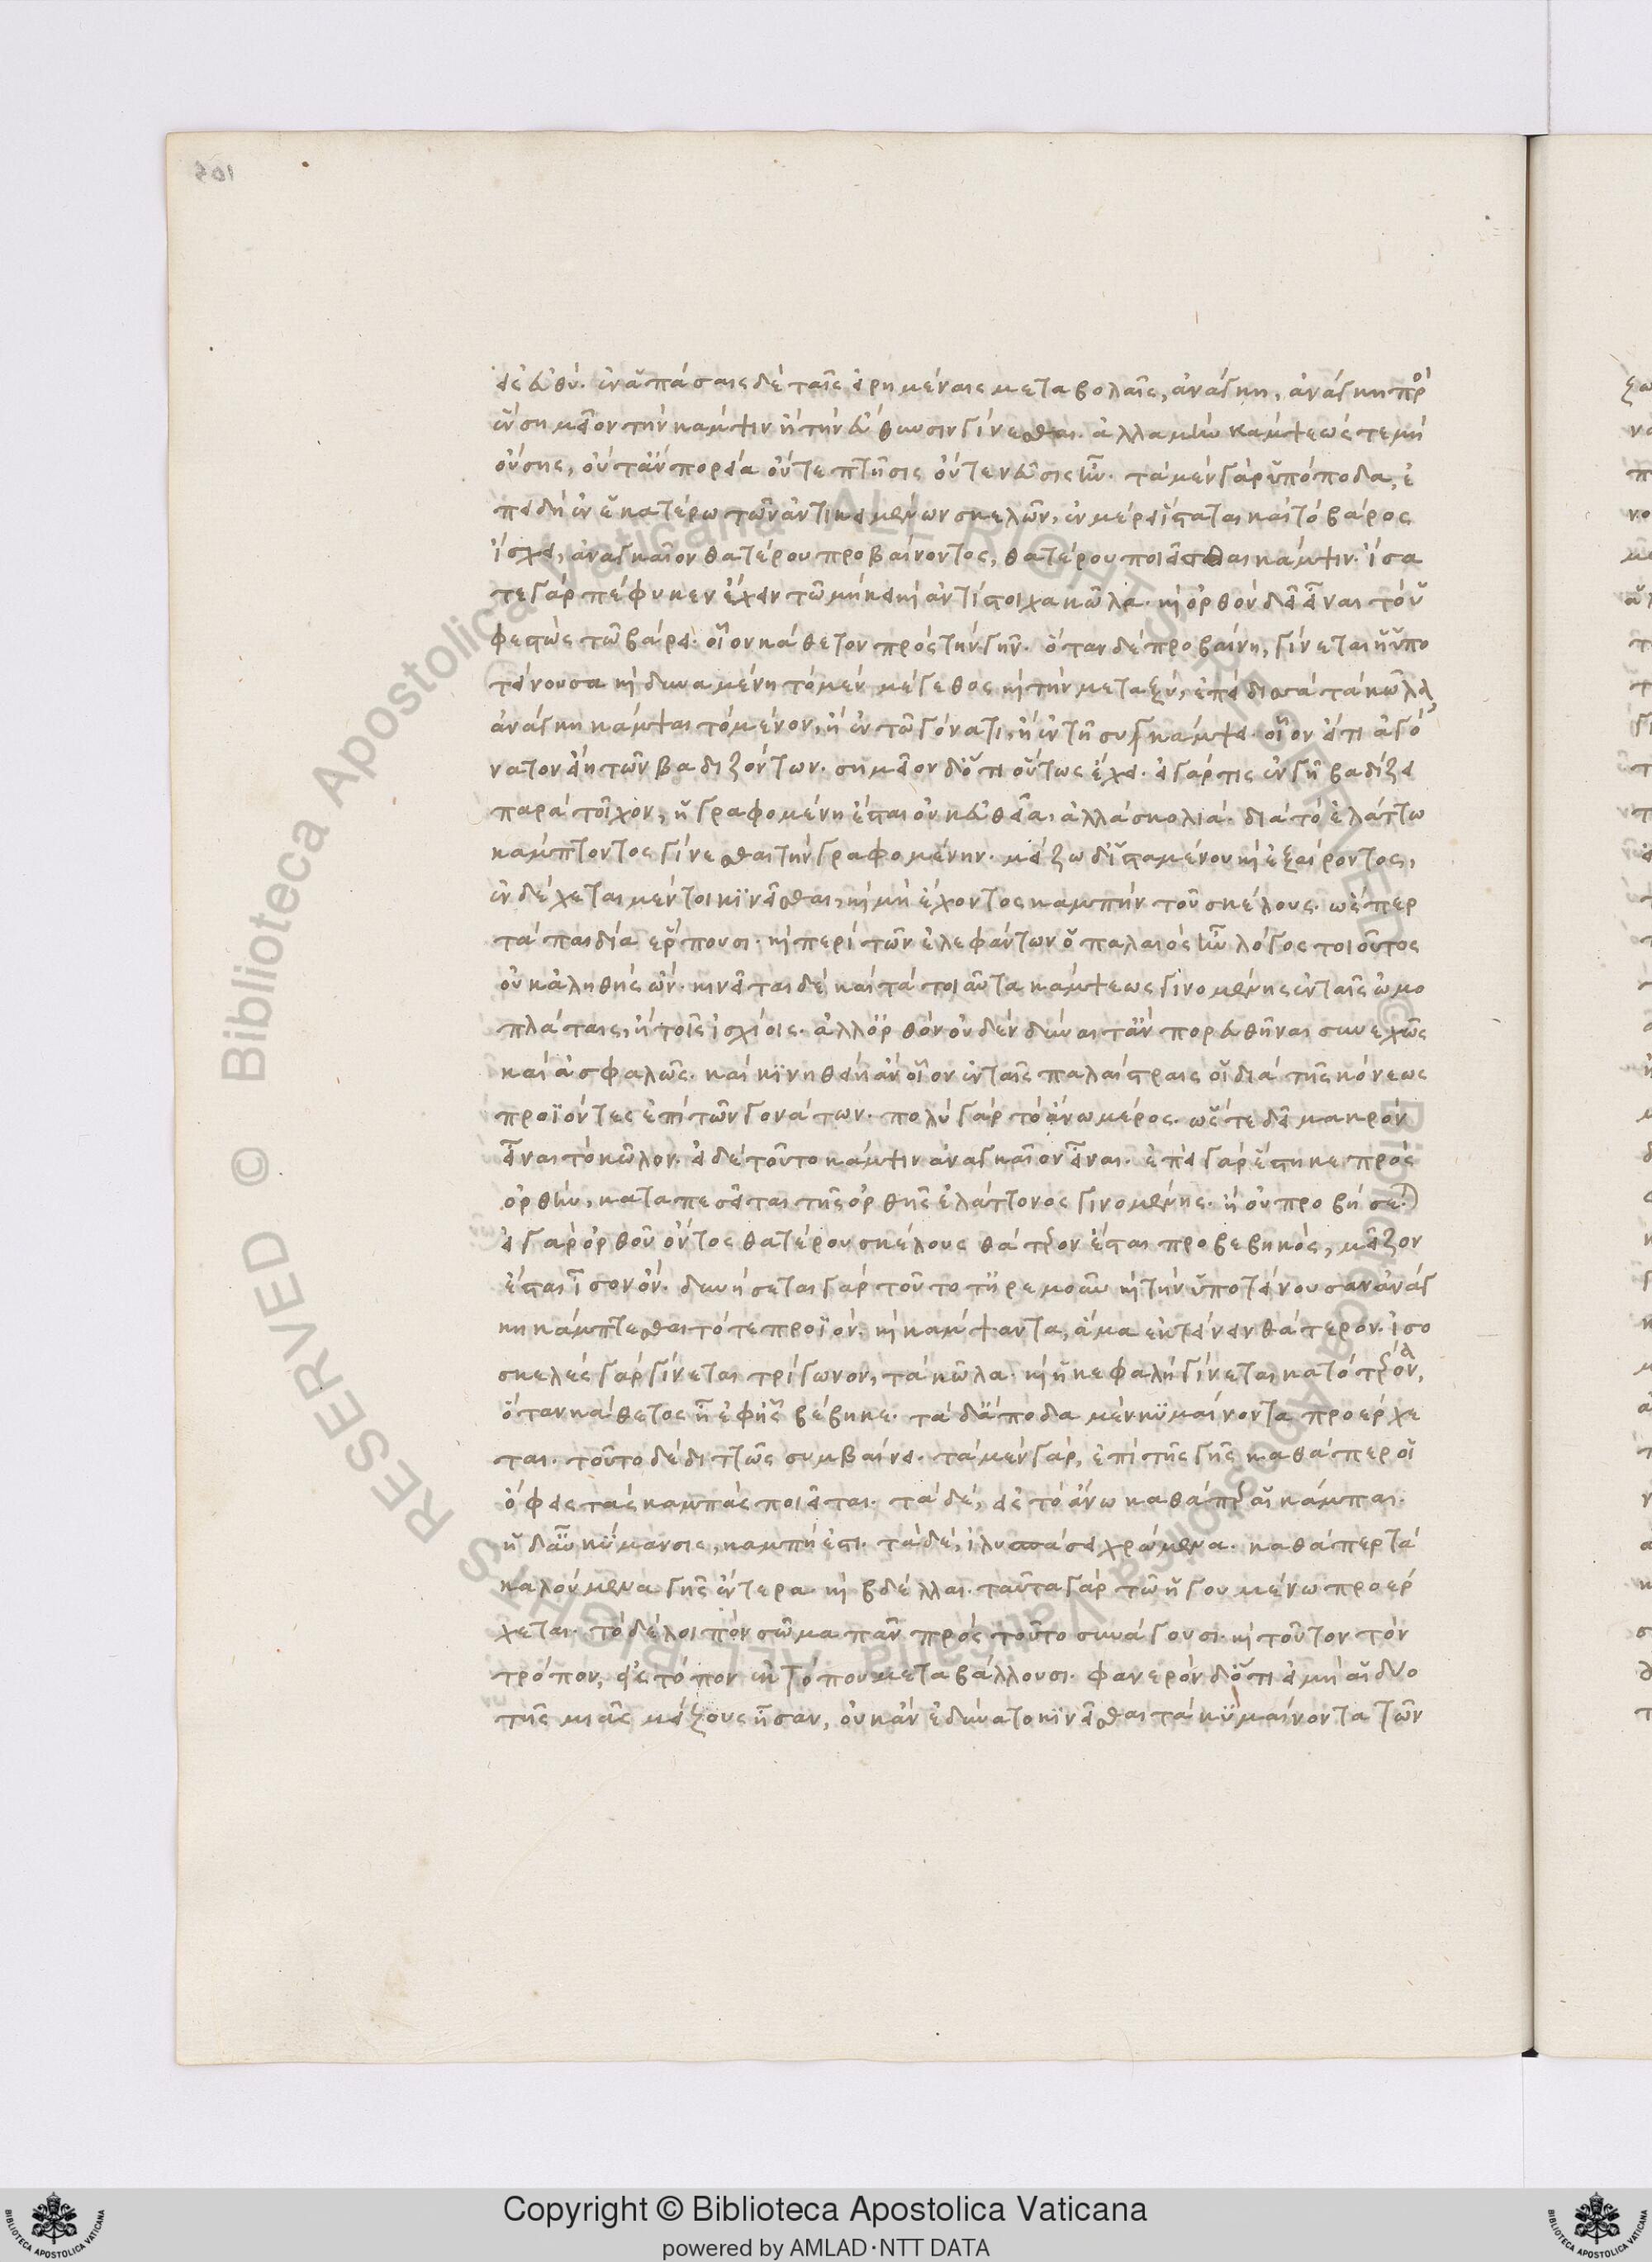 εἰς εὐθύ. ἐν ἁπάσαις δὲ ταῖς εἰρημέναις μεταβολαῖς, ἀνάγκη, ἀνάγκη πρὸ
ἐν σημεῖον τὴν κάμψιν ἢ τὴν εὔθυνσιν γίνεσθαι. ἀλλὰ μὴν κάμψεώς τε μὴ
οὔσης, οὔτ' ἂν πορεία οὔτε πτῆσις οὔτε νεῦσις ἦν. τὰ μὲν γὰρ ὑπόποδα, ἐ
πειδὴ ἐν ἑκατέρω τῶν ἀντικειμένων σκελῶν, ἐν μέρει ἵσταται καὶ τὸ βάρος
ἴσχει, ἀναγκαῖον θατέρου προβαίνοντος, θατέρου ποιεῖσθαι κάμψιν. ἴσα
τε γὰρ πέφυκεν ἔχειν τῶ μήκει κὶ ἀντίστοιχα κῶλα. κὶ ὀρθὸν δεῖ εἶναι τὸ ὑ
φεστὼς τῶ βάρει. οἷον κάθετον πρὸς τὴν γῆν. ὅταν δὲ προβαίνη, γίνεται ἡ ὑπο
τείνουσα κὶ δυναμένη τὸ μὲν μέγεθος κὶ τὴν μεταξύ, ἐπεὶ δ' ἴσα τὰ κῶλα
ἀνάγκη κάμψαι τὸ μένον, ἢ ἐν τῶ γόνατι, ἢ ἐν τῆ συγκάμψει. οἷον εἴ τι ἀγό
νατον εἴη τῶν βαδιζόντων. σημεῖον δ' ὅτι οὕτως ἔχει. εἰ γάρ τις ἐν γῆ βαδίζει
παρὰ τοῖχον, ἡ γραφομένη ἔσται οὐκ εὐθεῖα, ἀλλὰ σκολιά. διὰ τὸ ἐλάττω
κάμπτοντος γίνεσθαι τὴν γραφομένην. μείζω δ' ἱσταμένου κὶ ἐξαίροντος,
ἐνδέχεται μέντοι κινεῖσθαι, κὶ μὴ ἔχοντος καμπὴν τοῦ σκέλους. ὥσπερ
τὰ παιδία ἕρπουσι. κὶ περὶ τῶν ἐλεφάντων ὁ παλαιὸς ἦν λόγος τοιοῦτος
οὐκ ἀληθὴς ὤν. κινεῖται δὲ καὶ τὰ τοιαῦτα κάμψεως γινομένης ἐν ταῖς ὠμο
πλάταις, ἢ τοῖς ἰσχίοις. ἀλλ' ὀρθὸν οὐδὲν δύναιτ' ἂν πορευθῆναι συνεχῶς
καὶ ἀσφαλῶς. καὶ κινηθείη ἂν οἷον ἐν ταῖς παλαίστραις οἱ διὰ τῆς κόνεως
προϊόντες ἐπὶ τῶν γονάτων. πολὺ γὰρ τὸ ἄνω μέρος. ὥστε δεῖ μακρὸν
εἶναι τὸ κῶλον. εἰ δὲ τοῦτο κάμψιν ἀναγκαῖον εἶναι. ἐπεὶ γὰρ ἕστηκε πρὸς
ὀρθὴν, καταπεσεῖται τῆς ὀρθῆς ἐλάττονος γινομένης. ἢ οὐ προβήσεται
εἰ γὰρ ὀρθοῦ ὄντος θατέρου σκέλους θάτερον ἔσται προβεβηκός, μεῖζον
ἔσται ἴσον ὄν. δυνήσεται γὰρ τοῦτο τ' ἠρεμοῦν κὶ τὴν ὑποτείνουσαν ἀνάγ
κη κάμπτεσθαι τό τε προϊόν. κὶ κάμψαντα, ἅμα ἐκτείνειν θάτερον. ἰσο
σκελές γὰρ γίνεται τρίγωνον, τὰ κῶλα. κὶ ἡ κεφαλὴ γίνεται κατώτερον,
ὅταν κάθετος ἦ ἐφ' ἧς βέβηκε. τὰ δ' ἄποδα μὲν κυμαίνοντα προέρχε
ται. τοῦτο δὲ διττῶς συμβαίνει. τὰ μὲν γὰρ, ἐπὶ τῆς γῆς καθάπερ οἱ
ὄφεις τὰς καμπὰς ποιεῖται. τὰ δὲ, εἰς τὸ ἄνω καθάπερ αἱ κάμπαι.
ἡ δ' αὖ κύμανσις, καμπὴ ἐστι. τὰ δὲ, ἰλυσπάσει χρώμενα. καθάπερ τὰ
καλούμενα γῆς ἔντερα κὶ βδέλλαι. ταῦτα γὰρ τῶ ἡγουμένω προέρ
χεται. τὸ δὲ λοιπὸν σῶμα πᾶν πρὸς τοῦτο συνάγουσι. κὶ τοῦτον τὸν
τρόπον, εἰς τόπον ἐκ τόπου μεταβάλλουσι. φανερὸν δ' ὅτι εἰ μὴ αἱ δύο
τῆς μιᾶς μείζους ἦσαν, οὐκ ἂν ἐδύνατο κινεῖσθαι τὰ κυμαίνοντα τῶν
© Biblioteca Apostolica Vaticana ALL RIGHTS RESERVED
Copyright © Biblioteca Apostolica Vaticana
powered by AMLAD·NTT DATA